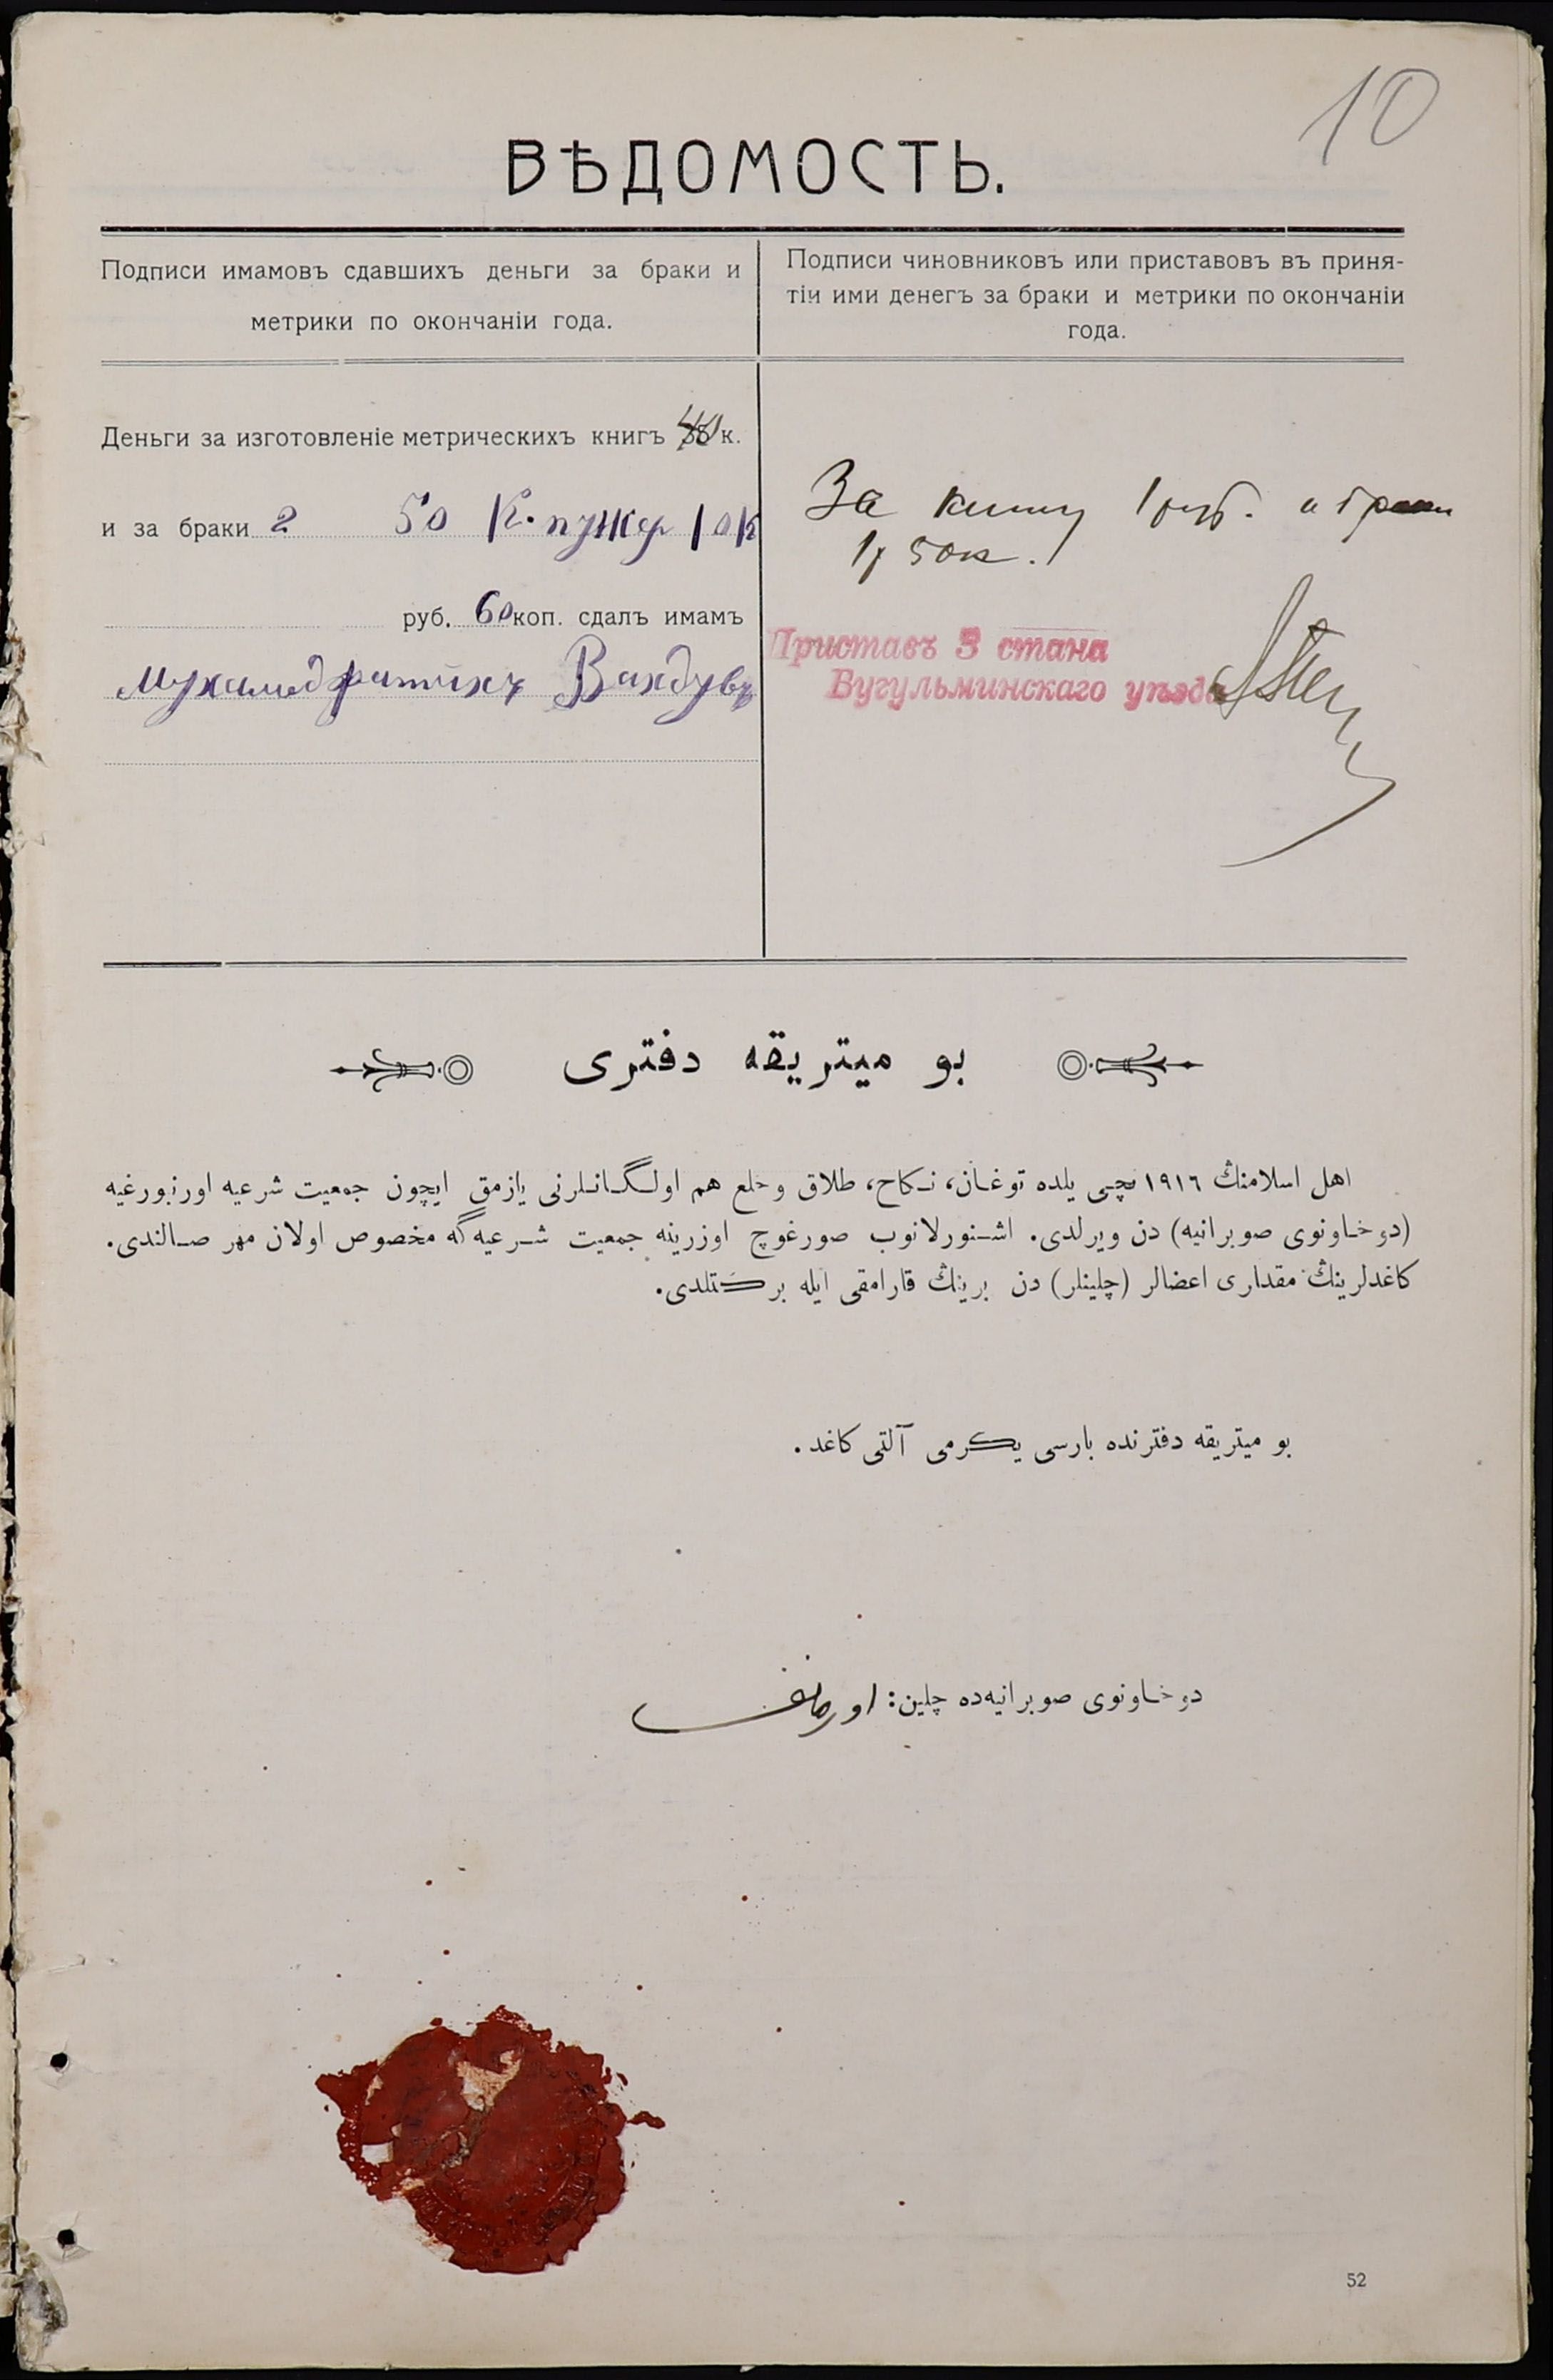 10
ВѢДОМОСТЬ.
Подписи имамовъ сдавшихъ деньги за браки и
метрики по окончаніи года.
Подписи чиновниковъ или приставовъ въ приня-
тіи ими денегъ за браки и метрики по окончаніи
года.
Деньги за изготовленіе метрическихъ книгъ 40 к.
и за браки 2 50 К. 10 К
руб. 60 коп. сдалъ имамъ
Мухамедфатихъ Вахдувъ
За книгу 1 руб. и
1 р 50 к.
Приставъ 3 стана
Бугульминскаго уѣзда
بو ميتريقه دفترى
اهل اسلامنڭ ١٩١٦ نچى يلده توغان، نكاح، طلاق وخلع هم اولگانلرنى يازمق ايچون جمعيت شرعيه اورنبورغيه
(دوخاونوى صوبرانيه) دن ويرلدى. اشنورلانوب صورغوچ اوزرينه جمعيت شرعيه گه مخصوص اولان مهر صالندى.
كاغدلرينڭ مقدارى اعضالر (چلينلر) دن برينڭ قارامقى ايله بركتلدى.
بو ميتريقه دفترنده بارسى يكرمى آلتى كاغد.
دوخاونوى صوبرانيه‌ده چلين:
52